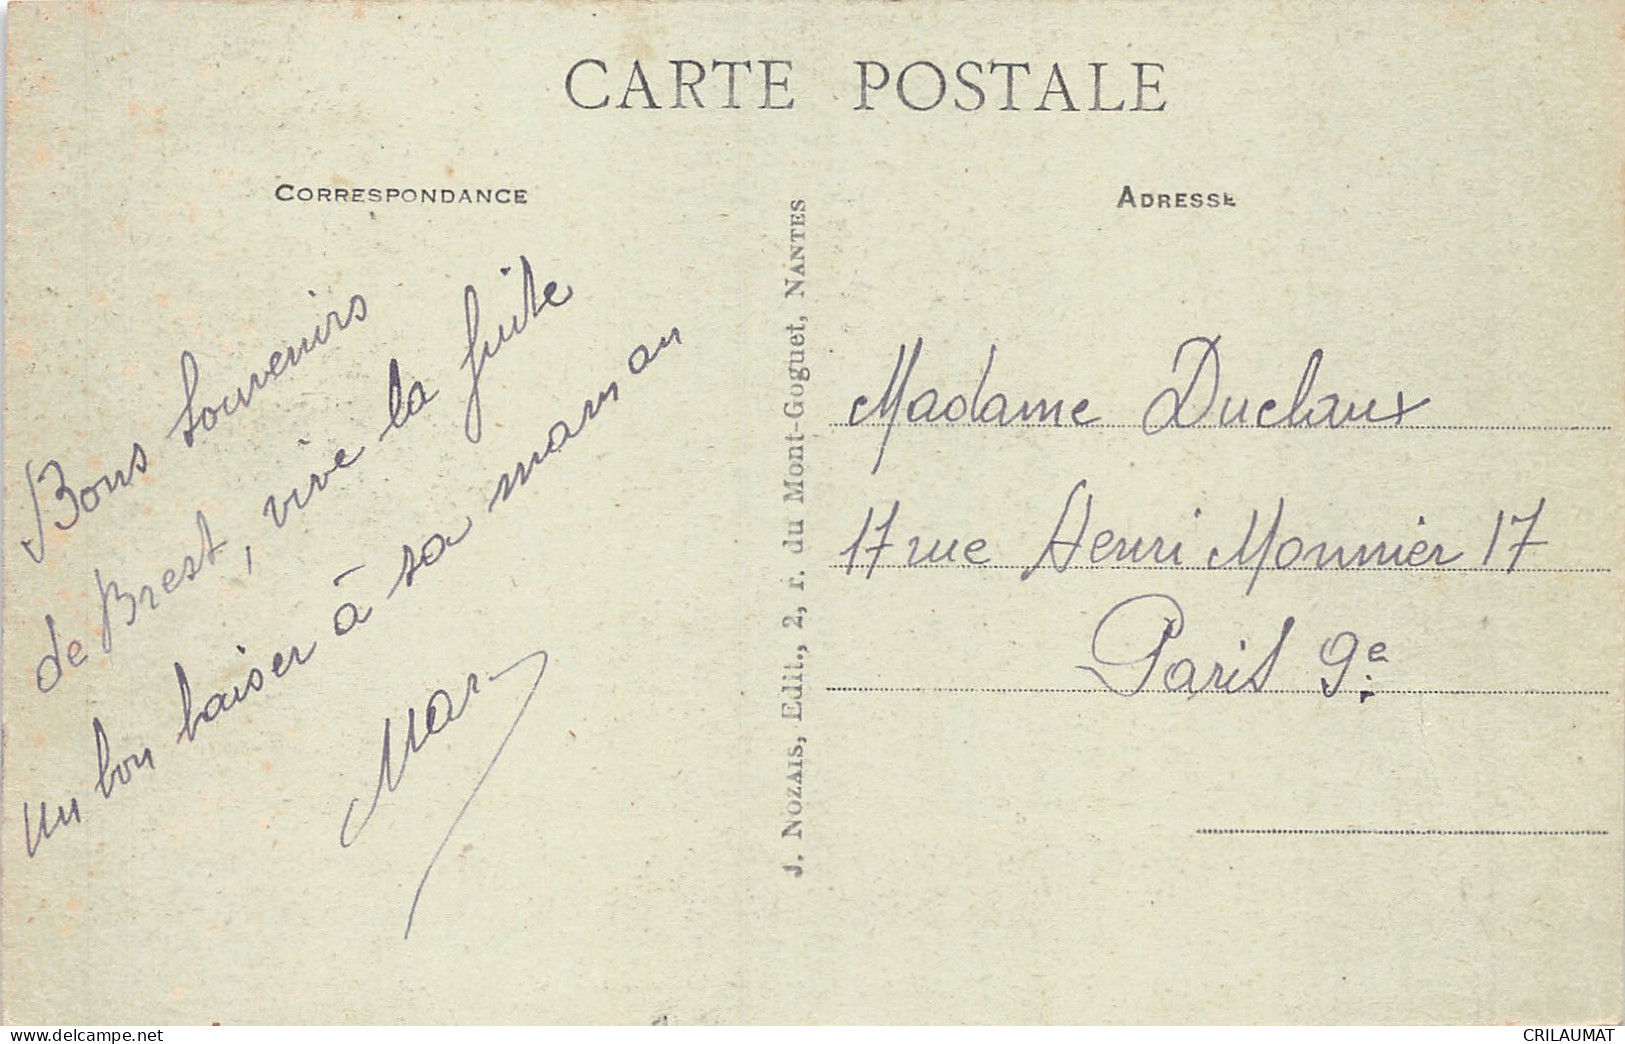 CARTE POSTALE
CORRESPONDANCE
ADRESSE
Bons souvenirs
de Brest, vive la fuite
un bon baiser à sa maman
J. NOZAIS, Edit., 2, r. du Mont-Goguet, NANTES
Madame Duclaux
17 rue Henri Monnier 17
Paris 9e
www.delcampe.net
CRILAUMAT